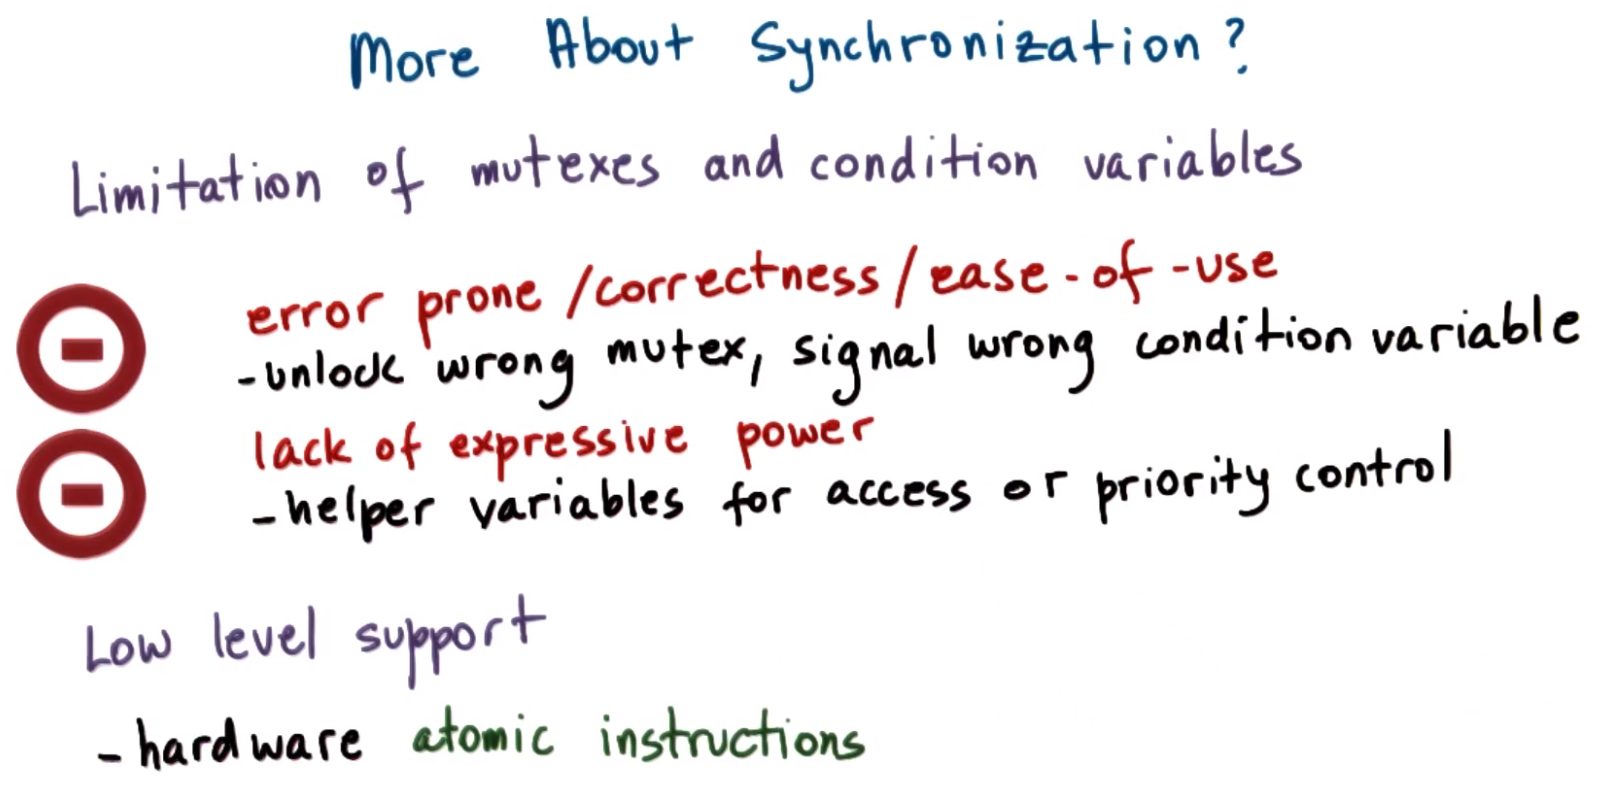 More About Synchronization?
Limitation of mutexes and condition variables
error prone /correctness/ease-of-use
-unlock wrong mutex, signal wrong condition variable
lack of expressive power
-helper variables for access or priority control
Low level support
-hardware atomic instructions